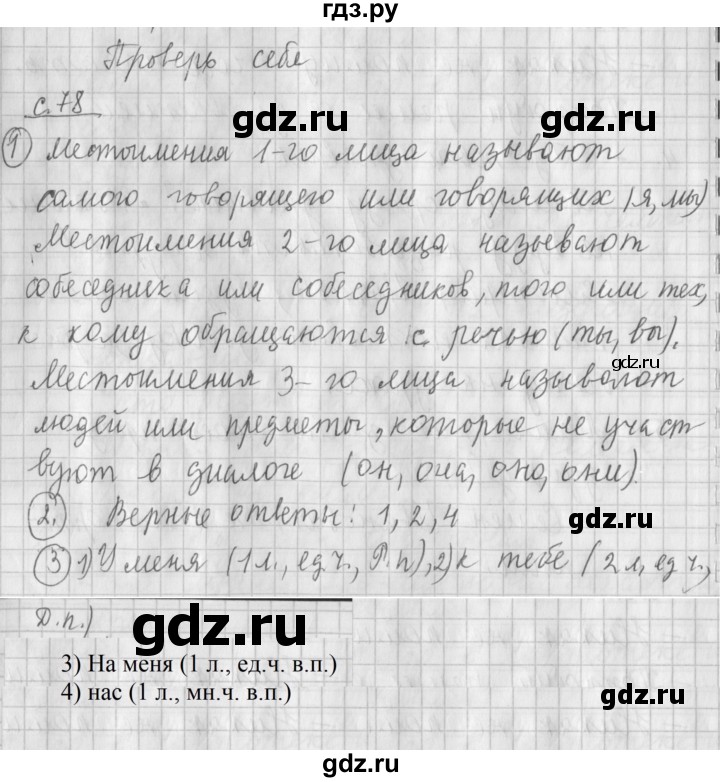 гдз.ру
Проверь себе
с. 78
gdz.ru gdz.ru
1 Местоимения 1-го лица называют
самого говорящего или говорящих (я, мы)
Местоимения 2-го лица называют
собеседника или собеседников, того или тех,
к кому обращаются с речью (ты, вы).
gdz.ru
Местоимения 3-го лица называют
людей или предметы, которые не участ
вуют в диалоге (он, она, оно, они).
2. Верные ответы: 1, 2, 4
gdz.ru
3 1) У меня (1 л., ед.ч., Р.п), 2) к тебе (2 л, ед.ч.,
Д.п.)
gdz.ru
3) На меня (1 л., ед.ч. в.п.)
4) нас (1 л., мн.ч. в.п.)
gdz.ru
gdz.ru